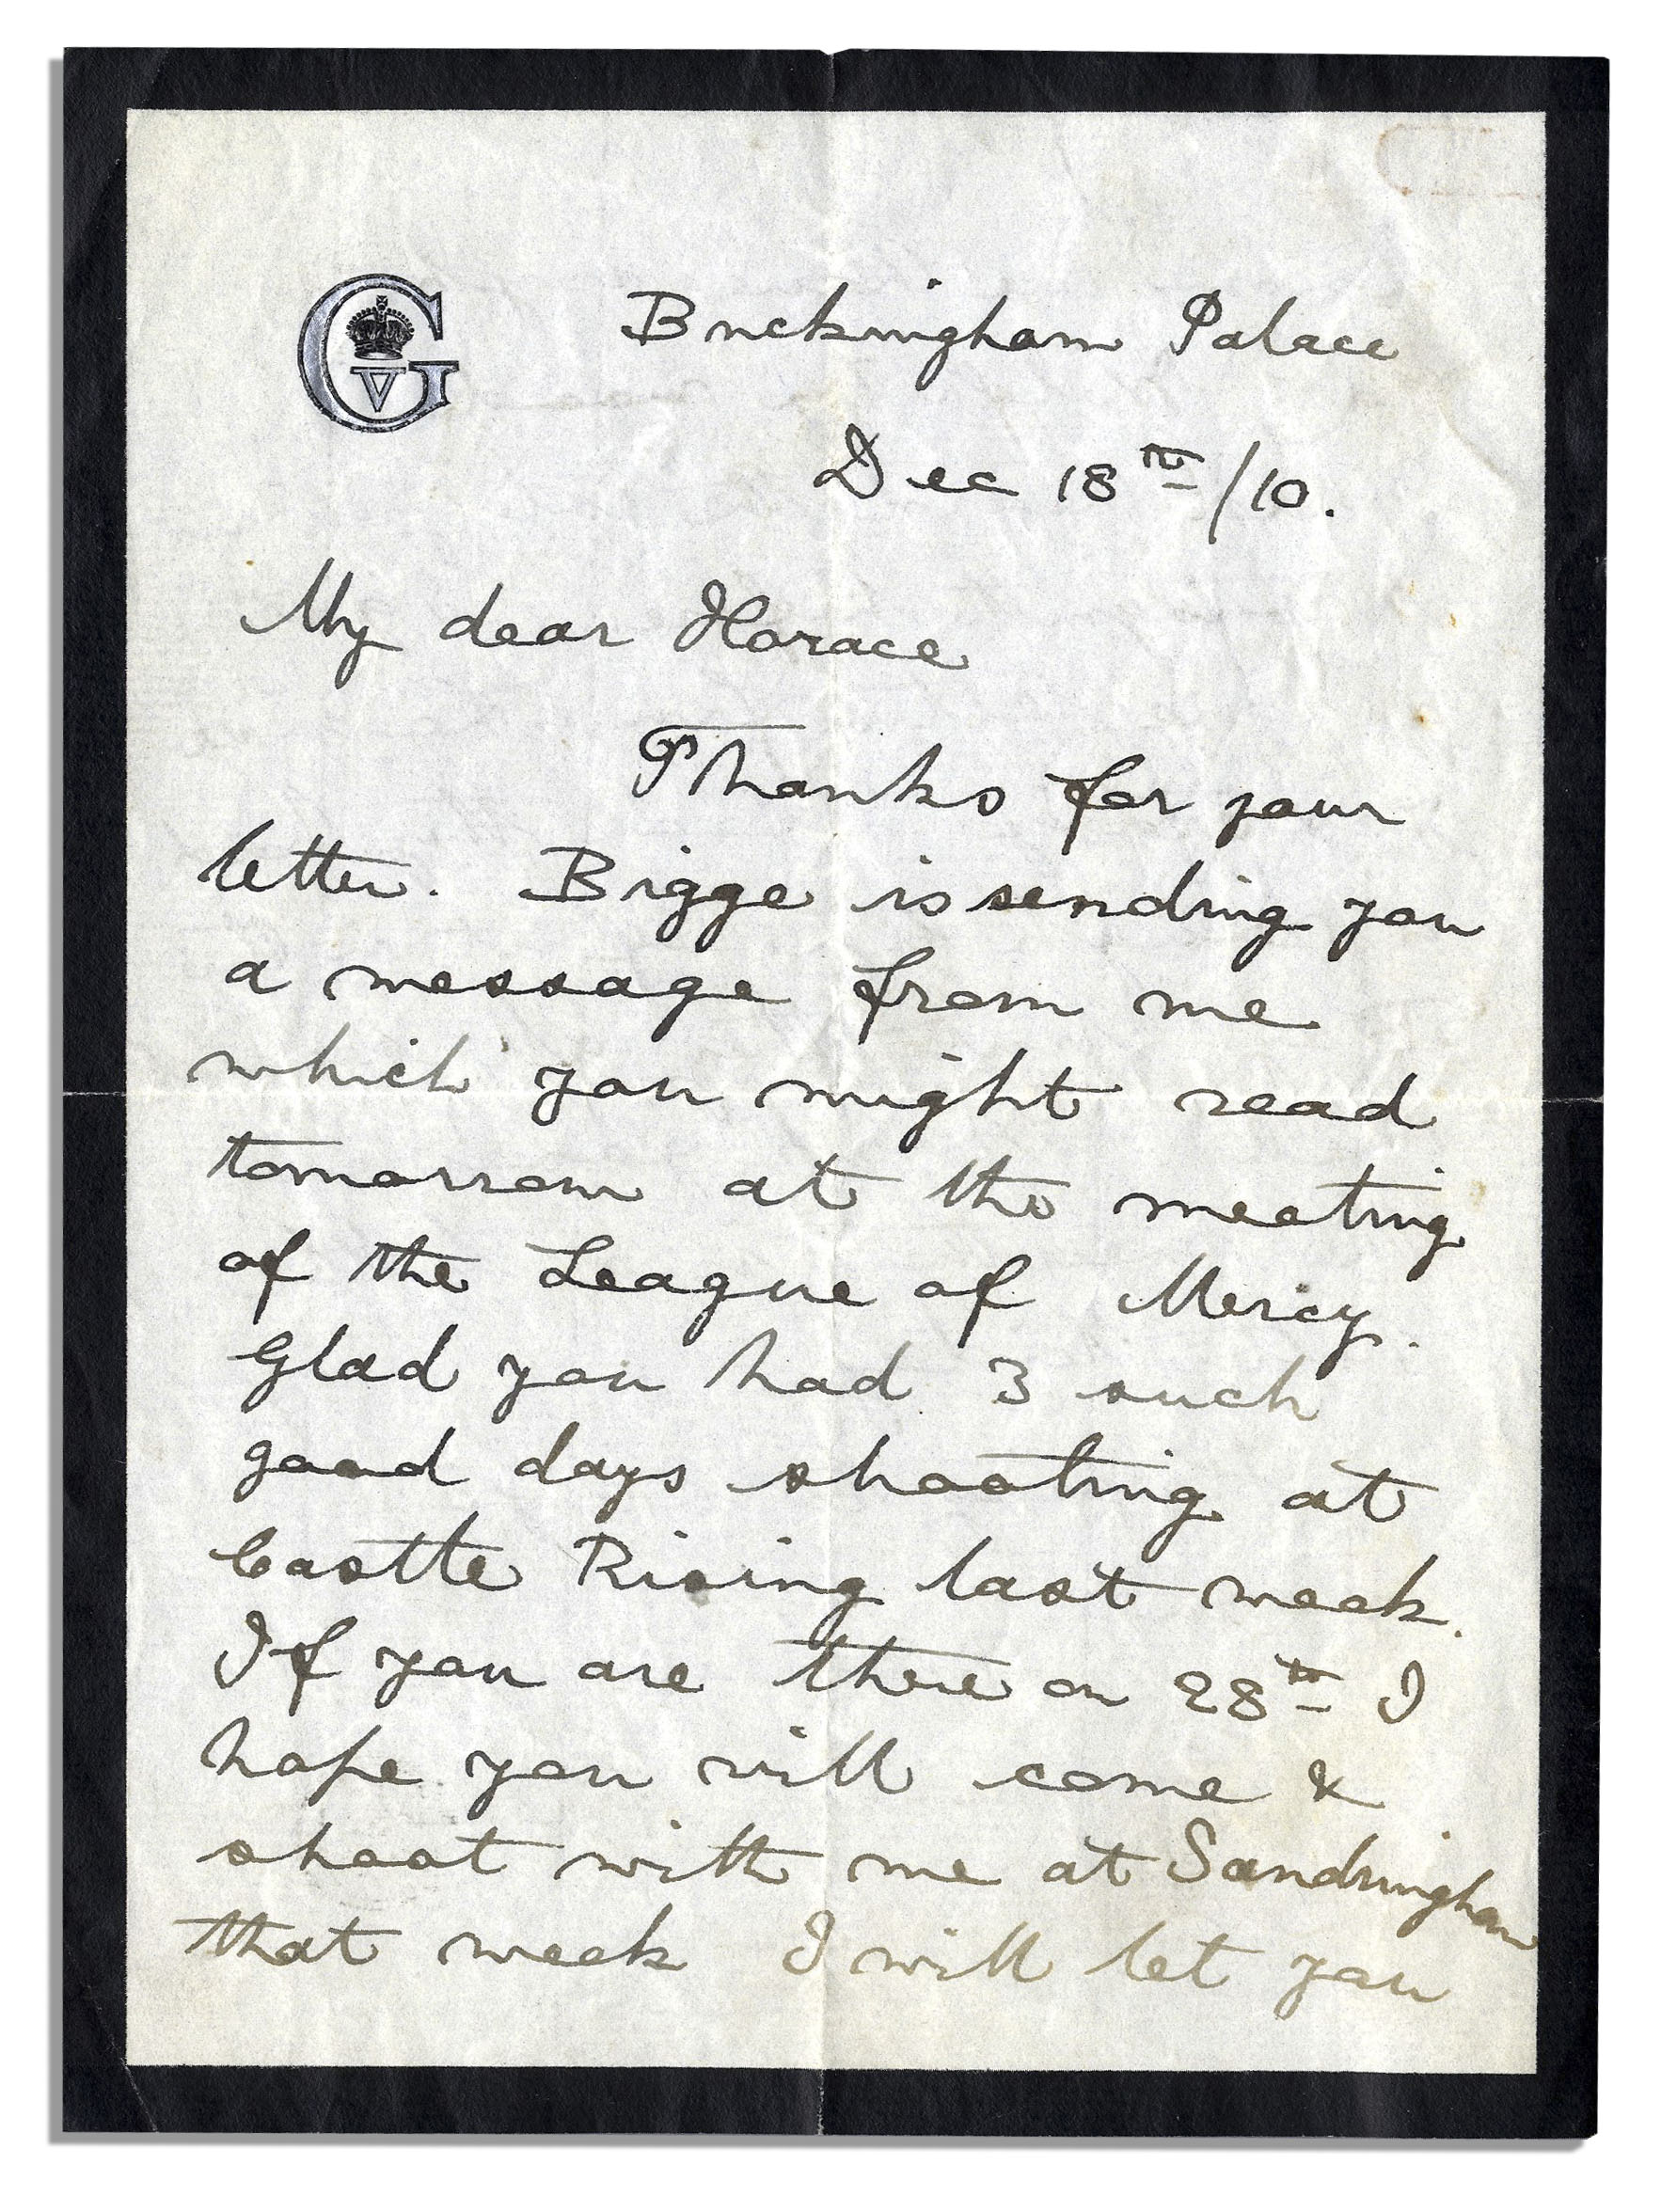 GV
Buckingham Palace
Dec 18th/10.
My dear Horace
Thanks for your
letter. Bigge is sending you
a message from me
which you might read
tomorrow at the meeting
of the League of Mercy.
Glad you had 3 such
good days shooting at
Castle Rising last week.
If you are there on 28th I
hope you will come &
shoot with me at Sandringham
that week I will let you